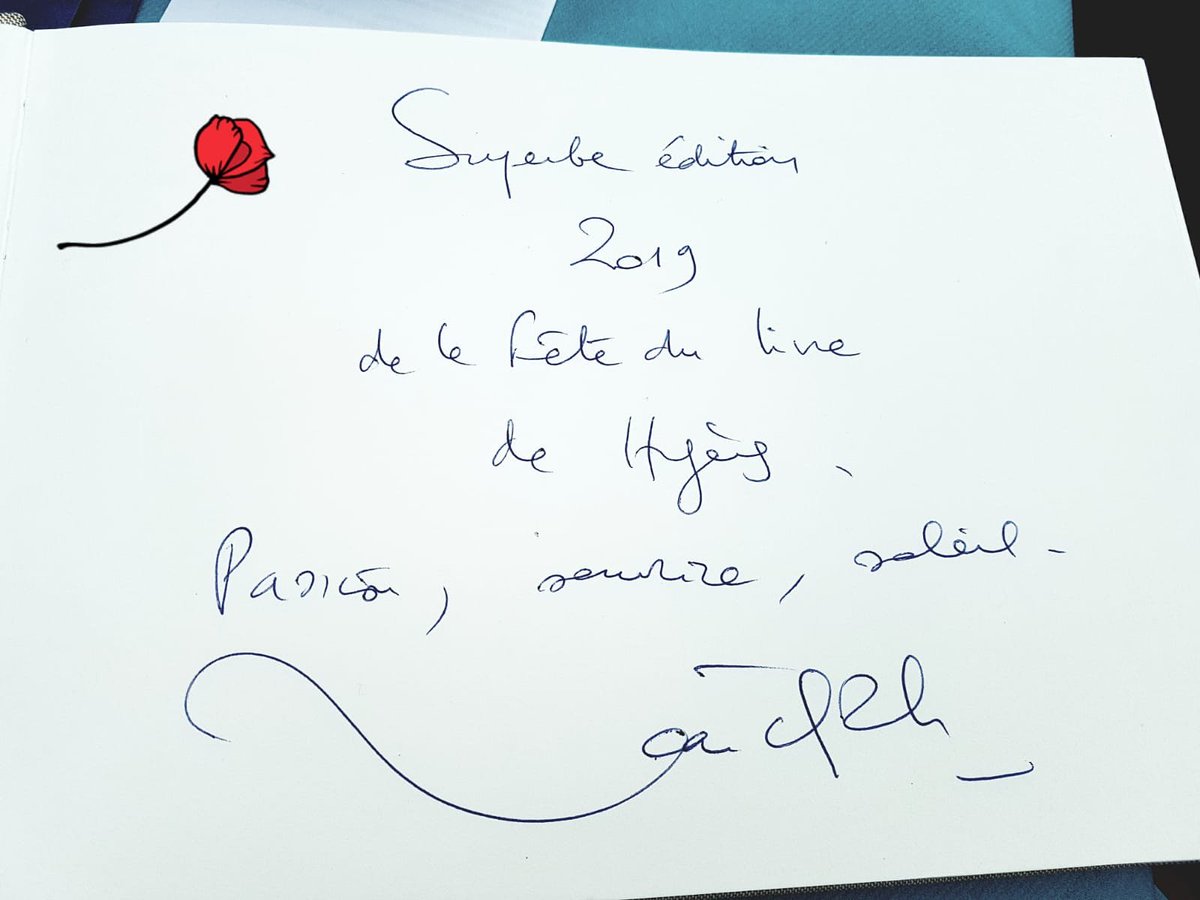 Superbe édition
2019
de la Fête du livre
de Hyères.
Passion, sourire, soleil -